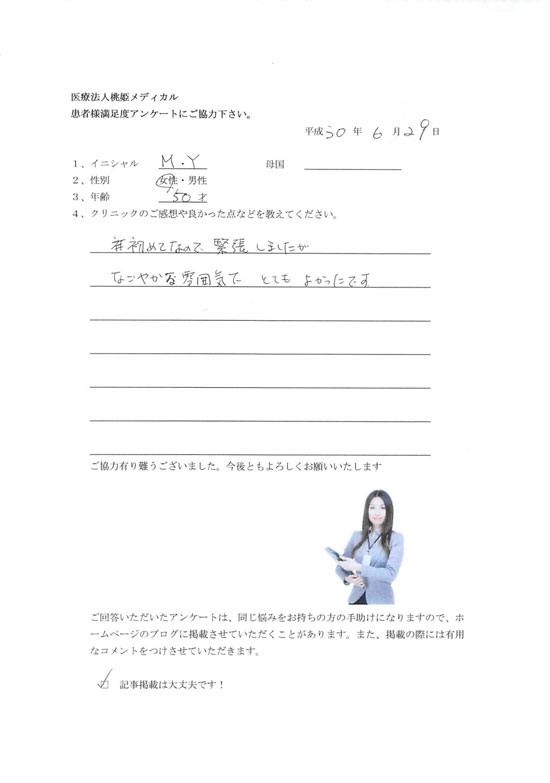 医療法人桃姫メディカル
患者様満足度アンケートにご協力下さい。
平成30年 6月29日
1、イニシャル M.Y 母国
2、性別 女性・男性
3、年齢 50才
4、クリニックのご感想や良かった点などを教えてください。
初めてなので、緊張しましたが
なごやかな雰囲気で とても よかったです
ご協力有り難うございました。今後ともよろしくお願いいたします
ご回答いただいたアンケートは、同じ悩みをお持ちの方の手助けになりますので、ホ
ームページのブログに掲載させていただくことがあります。また、掲載の際には有用
なコメントをつけさせていただきます。
記事掲載は大丈夫です!